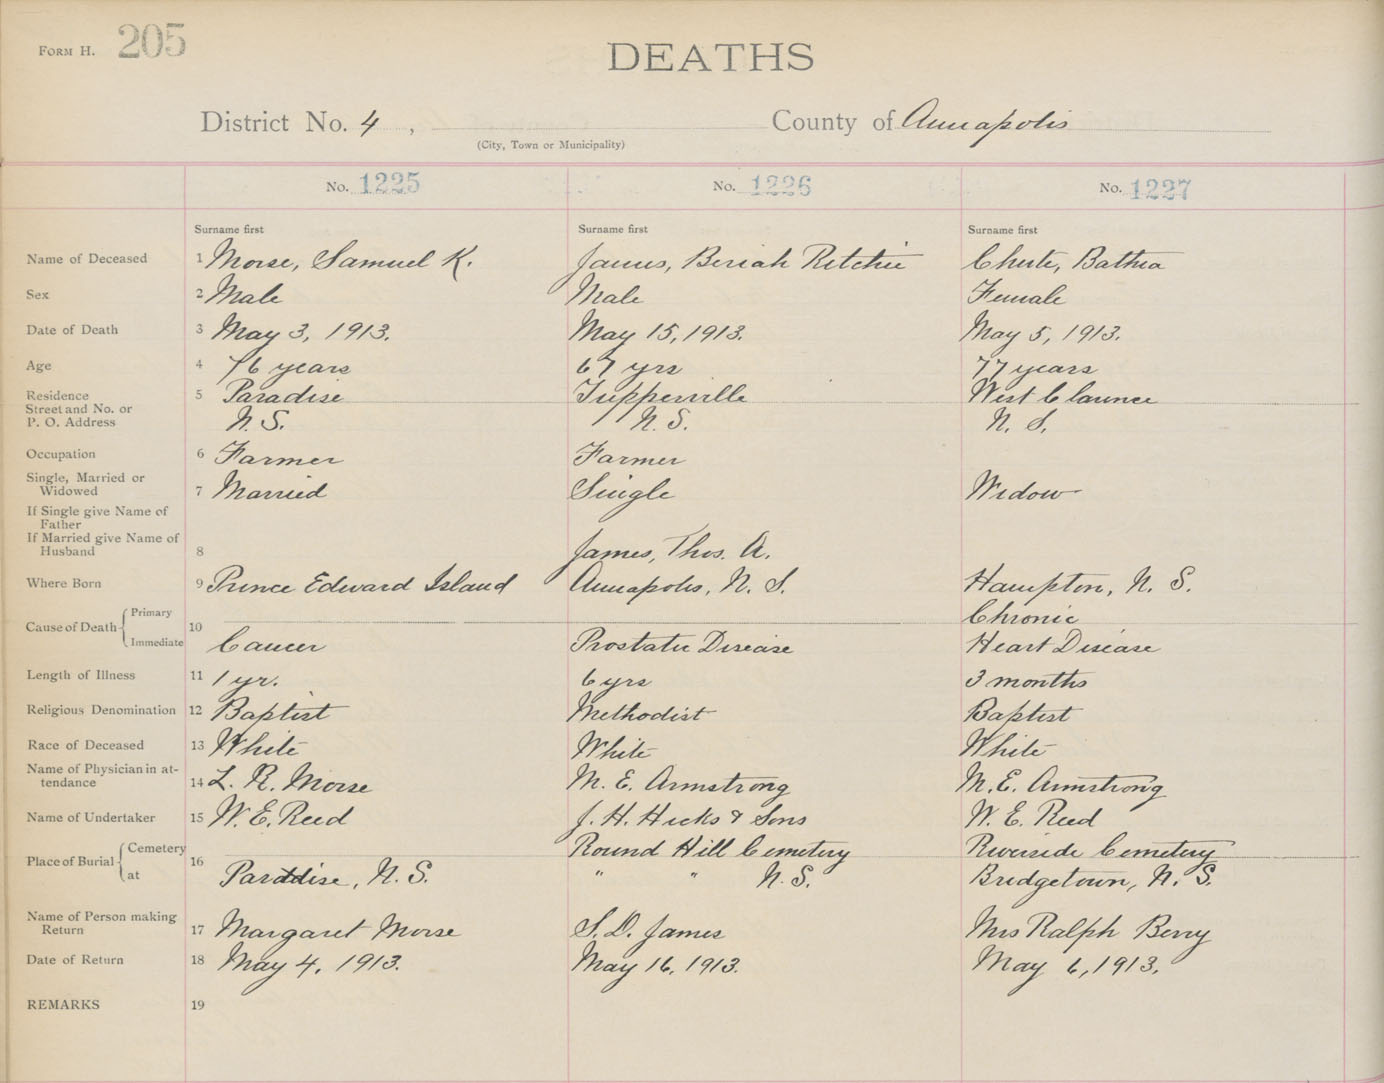 FORM H. 205
DEATHS
District No. 4, County of Annapolis
(City, Town or Municipality)
No. 1225 No. 1226 No. 1227
Surname first Surname first Surname first
Name of Deceased 1 Morse, Samuel K. James, Beriah Ritchie Chute, Bathia
Sex 2 Male Male Female
Date of Death 3 May 3, 1913. May 15, 1913. May 5, 1913.
Age 4 76 years 67 yrs 77 years
Residence 5 Paradise Tupperville West Clarence
Street and No. or
P. O. Address N.S. N.S. N. S.
Occupation 6 Farmer Farmer
Single, Married or
Widowed 7 Married Single Widow
If Single give Name of
Father
If Married give Name of
Husband 8 James, Thos. A.
Where Born 9 Prince Edward Island Annapolis, N. S. Hampton, N. S.
Primary Chronic
Cause of Death 10
Immediate Cancer Prostatic Disease Heart Disease
Length of Illness 11 1 yr. 6 yrs 3 months
Religious Denomination 12 Baptist Methodist Baptist
Race of Deceased 13 White White White
Name of Physician in at-
tendance 14 L. R. Morse M. E. Armstrong M. E. Armstrong
Name of Undertaker 15 W. E. Reed J. H. Hicks & Sons W. E. Reed
Cemetery Round Hill Cemetery Riverside Cemetery
Place of Burial 16
at Paradise, N. S. " " N. S. Bridgetown, N. S.
Name of Person making
Return 17 Margaret Morse S. D. James Mrs Ralph Berry
Date of Return 18 May 4, 1913. May 16, 1913. May 6, 1913.
REMARKS 19